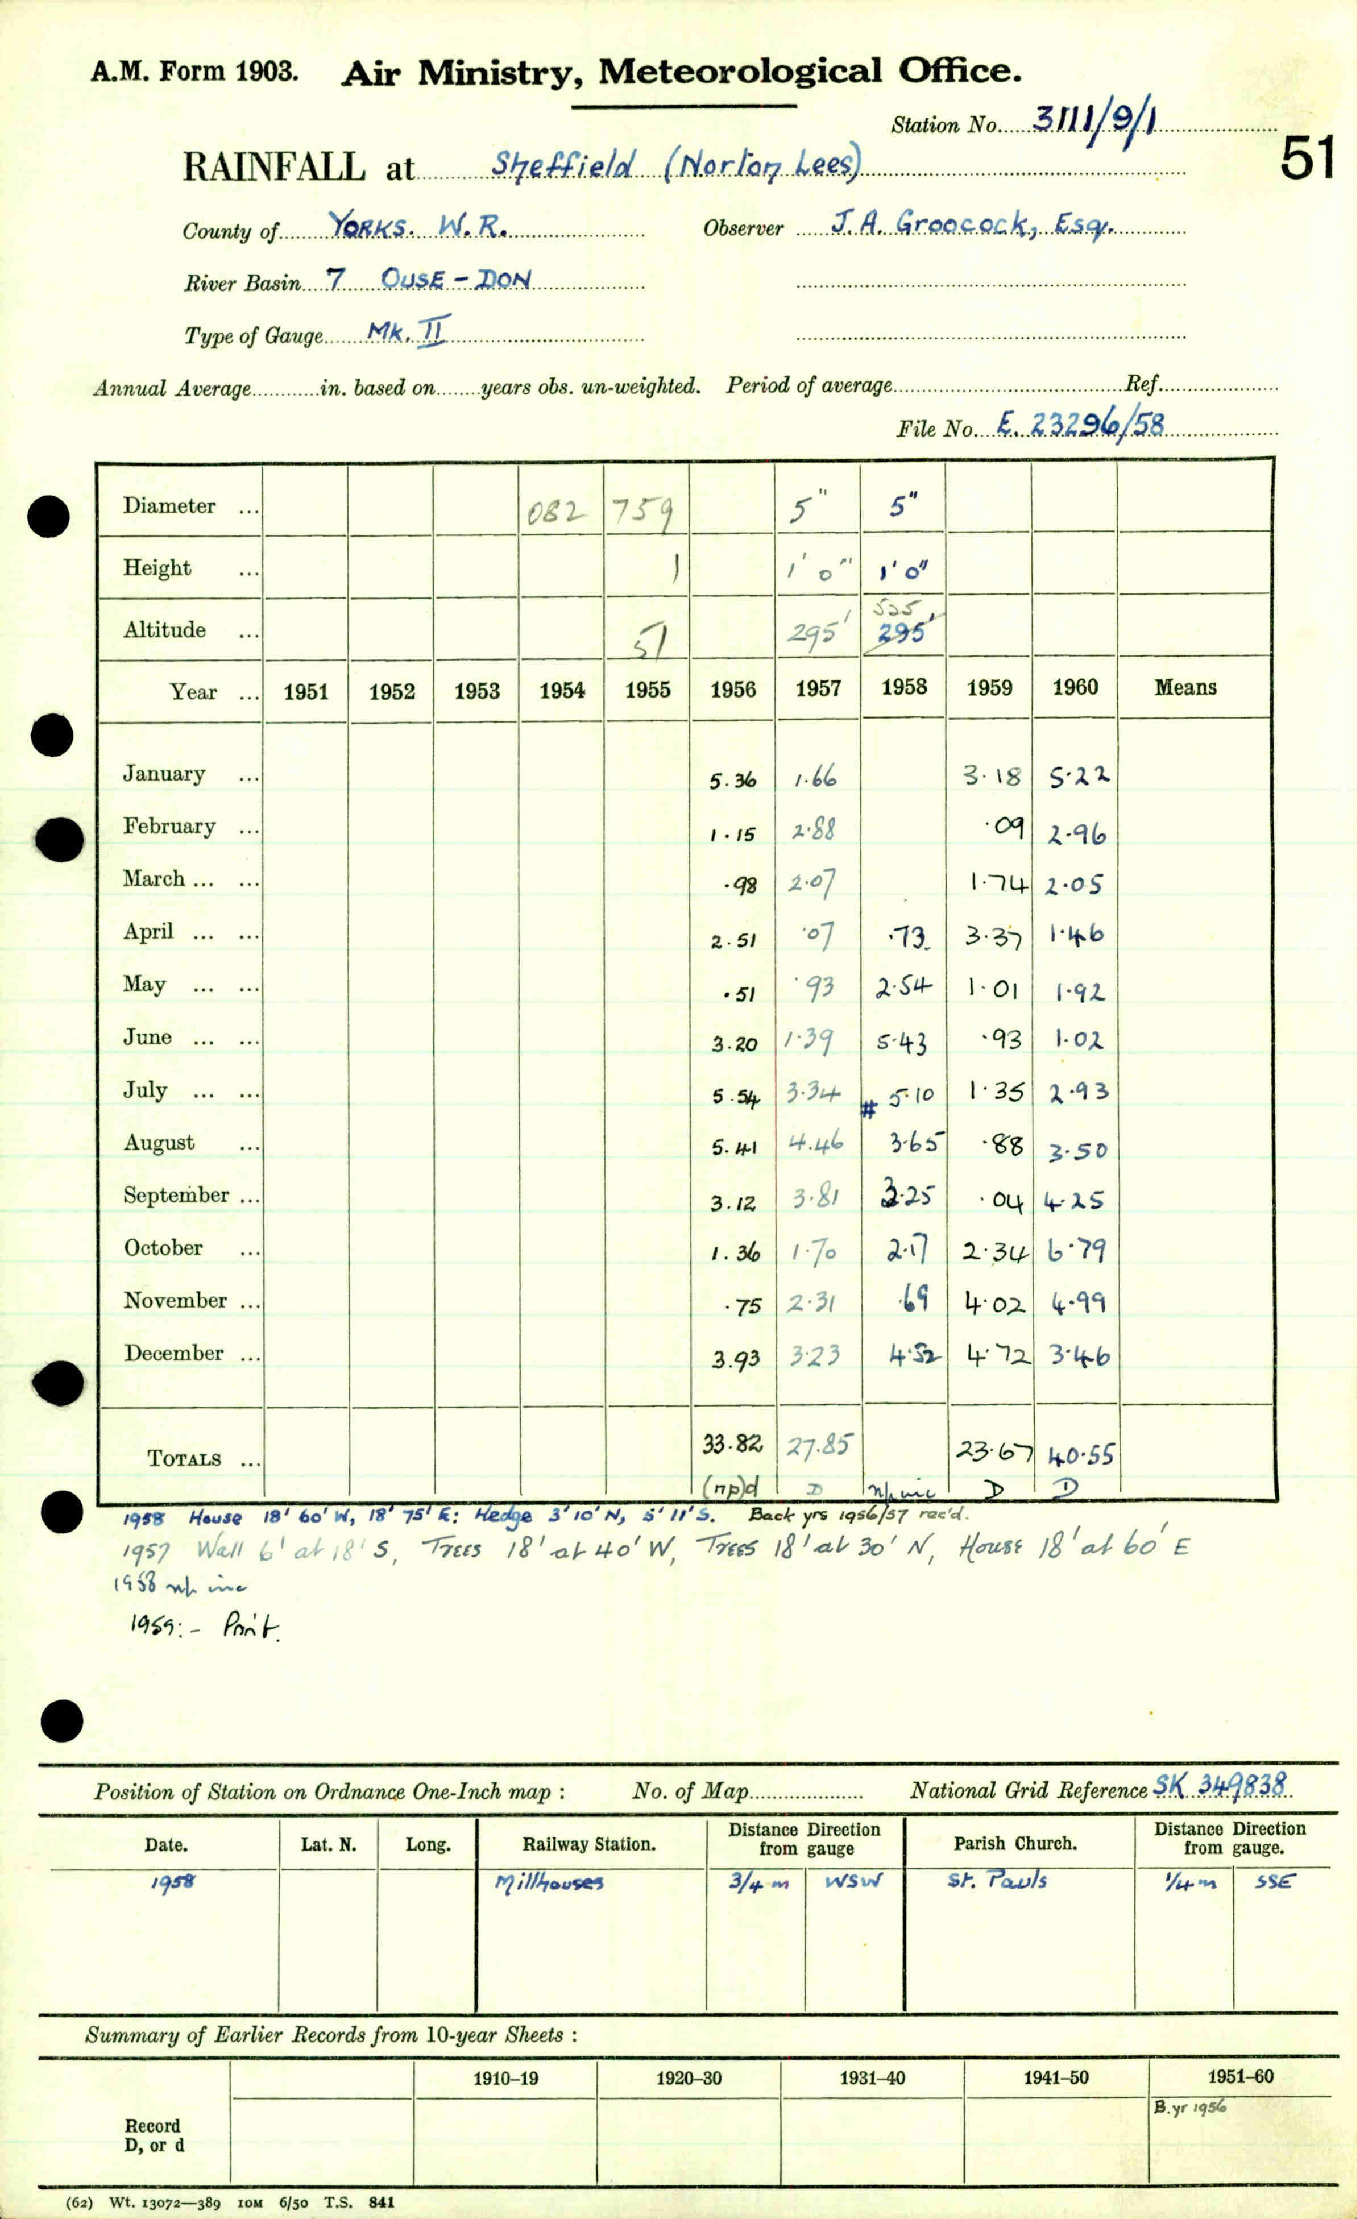 A.M. Form 1903. Air Ministry, Meteorological Office.
Station No. 3111/9/1
51
RAINFALL at Sheffield (Norton Lees)
County of YORKS. W.R. Observer J.A. Groocock, Esq.
River Basin 7 OUSE - DON
Type of Gauge Mk. II
Annual Average in. based on years obs. un-weighted. Period of average Ref.
File No. E. 23296/58
Diameter ... 082 759 5" 5"
Height ... 1 1' 0" 1' 0"
525
Altitude ... 51 295' 295'
Year ... 1951 1952 1953 1954 1955 1956 1957 1958 1959 1960 Means
January ... 5.36 1.66 3.18 5.22
February ... 1.15 2.88 .09 2.96
March ... ... .98 2.07 1.74 2.05
April ... ... 2.51 .07 .73 3.37 1.46
May ... ... .51 .93 2.54 1.01 1.92
June ... ... 3.20 1.39 5.43 .93 1.02
July ... ... 5.54 3.34 # 5.10 1.35 2.93
August ... 5.41 4.46 3.65 .88 3.50
September ... 3.12 3.81 3.25 .04 4.25
October ... 1.36 1.70 2.17 2.34 6.79
November ... .75 2.31 .69 4.02 4.99
December ... 3.93 3.23 4.52 4.72 3.46
TOTALS ... 33.82 27.85 23.67 40.55
(np)d D np inc D D
1958 House 18' 60' W, 18' 75' E: Hedge 3' 10' N, 5' 11' S. Back yrs 1956/57 rec'd.
1957 Wall 6' at 18' S, Trees 18' at 40' W, Trees 18' at 30' N, House 18' at 60' E
1958 np inc
1959:- Print.
Position of Station on Ordnance One-Inch map : No. of Map National Grid Reference SK 349838
Date. Lat. N. Long. Railway Station. Distance Direction from gauge Parish Church. Distance Direction from gauge.
1958 Millhouses 3/4 m WSW St. Pauls 1/4 m SSE
Summary of Earlier Records from 10-year Sheets :
1910–19 1920–30 1931–40 1941–50 1951–60
B.yr 1956
Record
D, or d
(62) Wt. 13072—389 10M 6/50 T.S. 841